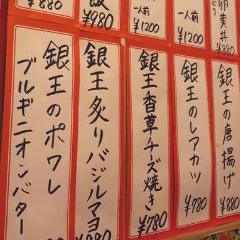 卵黄丼
一人前
¥1200
一人前
¥1200
飯
¥980
¥880
銀王の唐揚げ
¥880
銀王のレアカツ
¥780
銀王香草チーズ焼き
¥780
銀王炙りバジルマヨ
銀王のポワレ
ブルギニオンバター